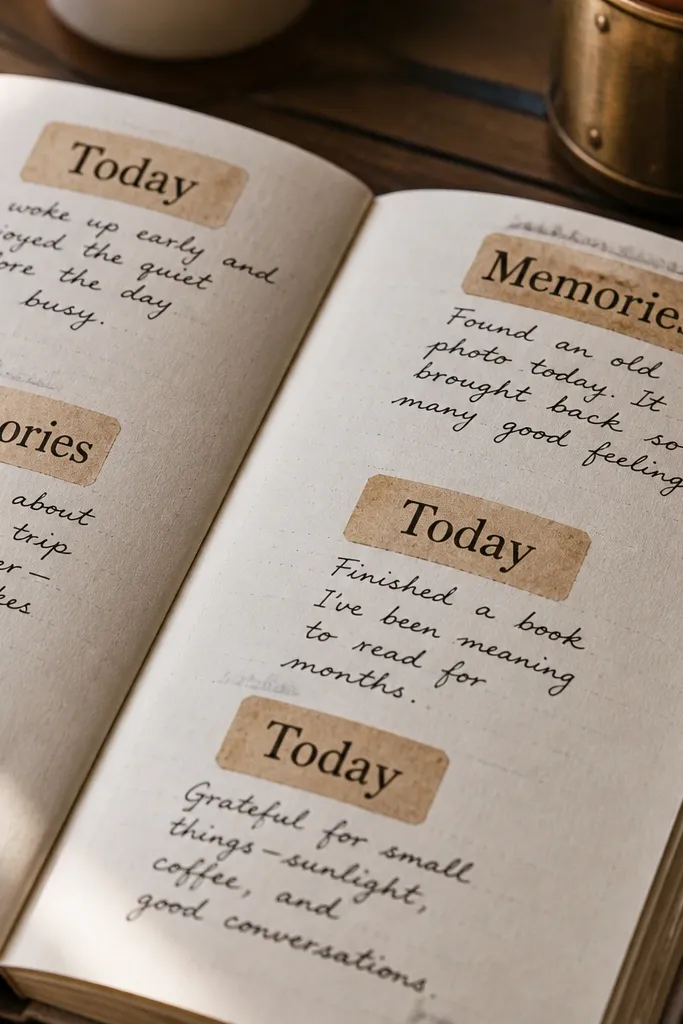 Today
woke up early and
joyed the quiet
ore the day
busy.
ories
about
trip
er—
kes
Memories
Found an old
photo today. It
brought back so
many good feeling
Today
Finished a book
I've been meaning
to read for
months.
Today
Grateful for small
things—sunlight,
coffee, and
good conversations.